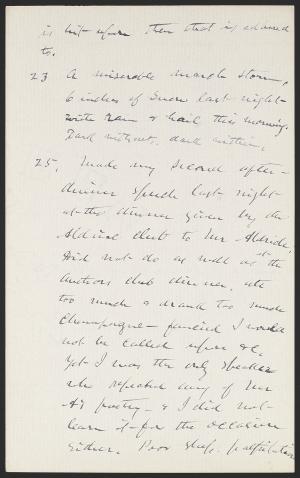 is hit upon then that is adhered
to.
23 A miserable March storm,
6 inches of snow last night
with rain & hail this morning.
Dark without, dark within.
25. Made my second after-
dinner speech last night
at the dinner given by the
Aldine club to Mr Aldrich.
Did not do as well as at the
Authors club dinner. ate
too much & drank too much
Champagne - fancied I would
not be called upon &c.
Yet I was the only speaker
who repeated any of Mr
A's poetry - & I did not
learn it for the occasion
either. Poor sleep. palpitation